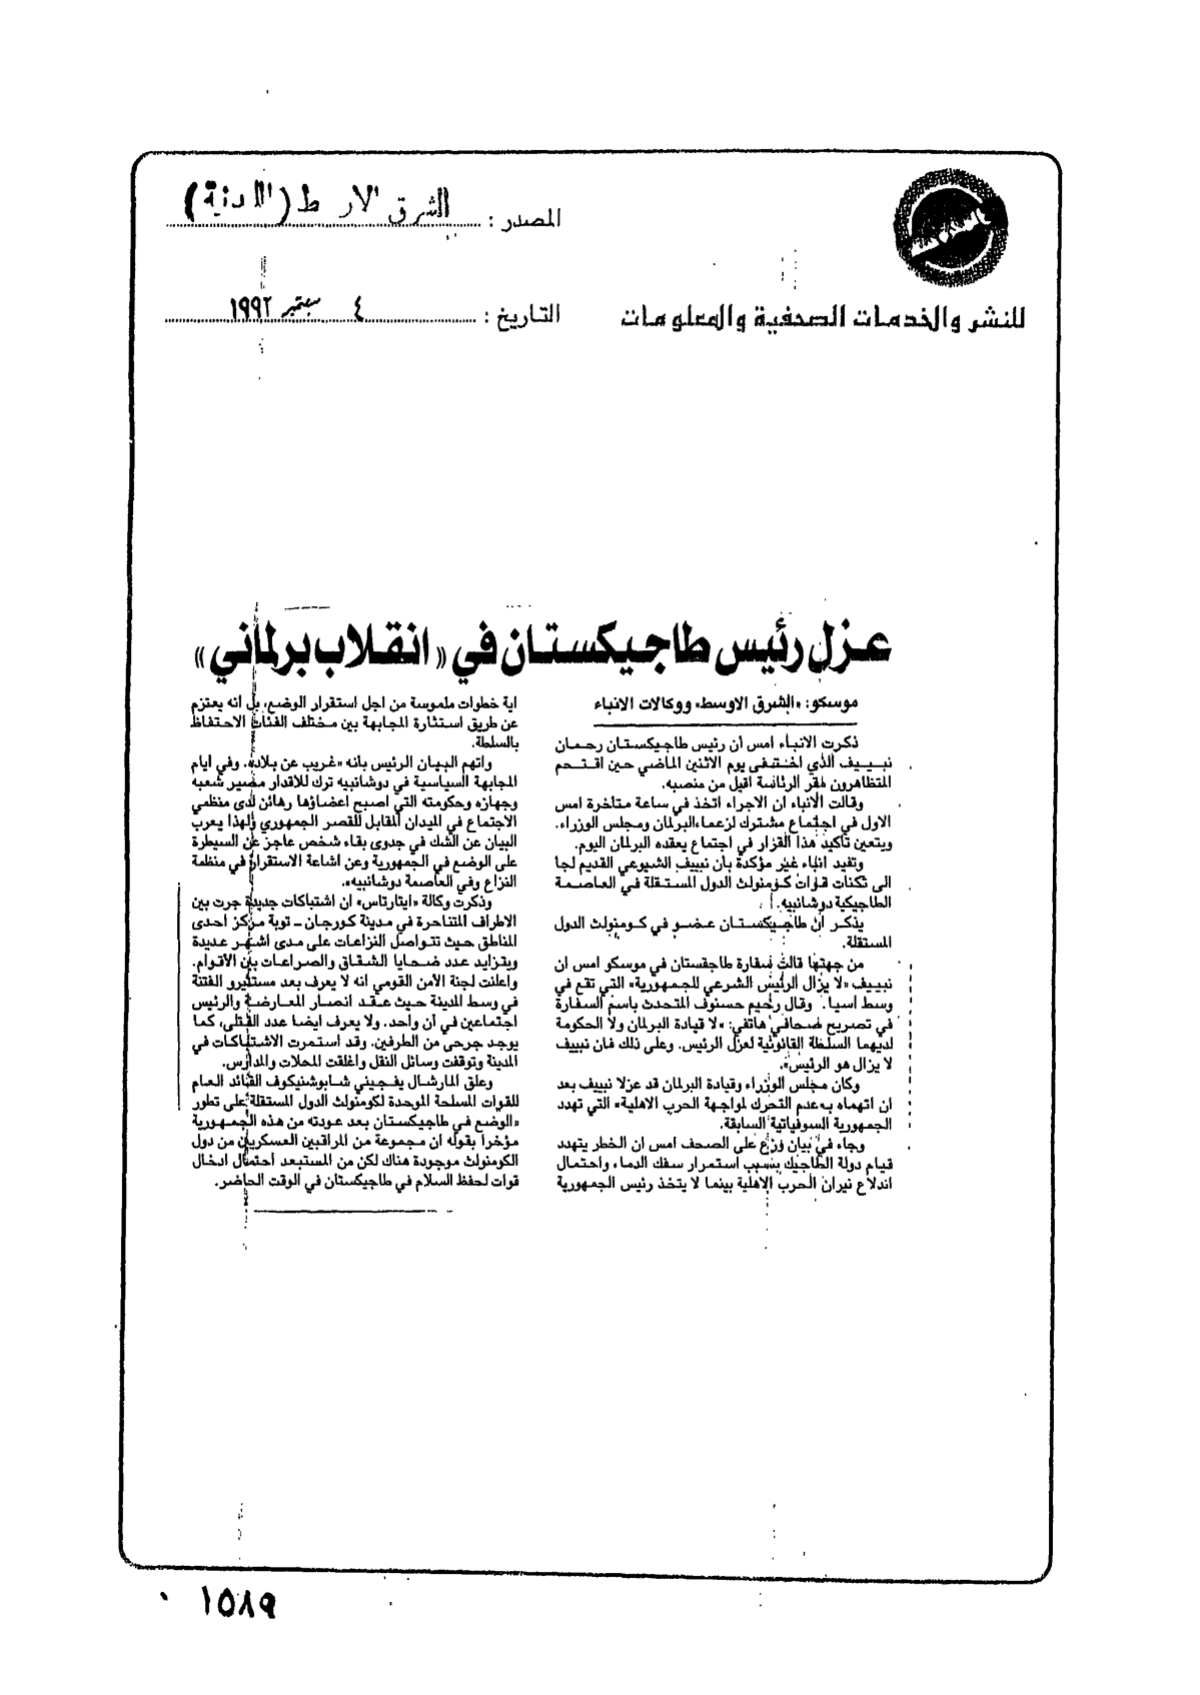 المصدر : الشرق الاوسط (اللندنية)
التاريخ : ٤ سبتمبر ١٩٩٢
للنشر والخدمات الصحفية والمعلومات
عزل رئيس طاجيكستان في «انقلاب برلماني»
موسكو: «الشرق الاوسط» ووكالات الانباء
ذكرت الانباء امس أن رئيس طاجيكستان رحمان
نبييف الذي اختفى يوم الاثنين الماضي حين اقتحم
المتظاهرون مقر الرئاسة اقيل من منصبه.
وقالت الانباء ان الاجراء اتخذ في ساعة متأخرة امس
الاول في اجتماع مشترك لزعماء البرلمان ومجلس الوزراء.
ويتعين تأكيد هذا القرار في اجتماع يعقده البرلمان اليوم.
وتفيد انباء غير مؤكدة بأن نبييف الشيوعي القديم لجا
الى ثكنات قوات كومنولث الدول المستقلة في العاصمة
الطاجيكية دوشانبيه.
يذكر أن طاجيكستان عضو في كومنولث الدول
المستقلة.
من جهتها قالت سفارة طاجقستان في موسكو امس ان
نبييف «لا يزال الرئيس الشرعي للجمهورية» التي تقع في
وسط اسيا. وقال رحيم حسنوف المتحدث باسم السفارة
في تصريح صحافي هاتفي: «لا قيادة البرلمان ولا الحكومة
لديهما السلطة القانونية لعزل الرئيس. وعلى ذلك فان نبييف
لا يزال هو الرئيس».
وكان مجلس الوزراء وقيادة البرلمان قد عزلا نبييف بعد
ان اتهماه بـ«عدم التحرك لمواجهة الحرب الاهلية» التي تهدد
الجمهورية السوفياتية السابقة.
وجاء في بيان وزع على الصحف امس ان الخطر يتهدد
قيام دولة الطاجيك بسبب استمرار سفك الدماء واحتمال
اندلاع نيران الحرب الاهلية بينما لا يتخذ رئيس الجمهورية
اية خطوات ملموسة من اجل استقرار الوضع، بل انه يعتزم
عن طريق استثارة المجابهة بين مختلف الفئات الاحتفاظ
بالسلطة.
واتهم البيان الرئيس بانه «غريب عن بلاده. وفي ايام
المجابهة السياسية في دوشانبيه ترك للاقدار مصير شعبه
وجهازه وحكومته التي اصبح اعضاؤها رهائن لدى منظمي
الاجتماع في الميدان المقابل للقصر الجمهوري ولهذا يعرب
البيان عن الشك في جدوى بقاء شخص عاجز عن السيطرة
على الوضع في الجمهورية وعن اشاعة الاستقرار في منطقة
النزاع وفي العاصمة دوشانبيه».
وذكرت وكالة «ايتارتاس» ان اشتباكات جديدة جرت بين
الاطراف المتناحرة في مدينة كورجان - توبة مركز احدى
المناطق حيث تتواصل النزاعات على مدى اشهر عديدة
ويتزايد عدد ضحايا الشقاق والصراعات بين الأقوام.
واعلنت لجنة الأمن القومي انه لا يعرف بعد مستثيرو الفتنة
في وسط المدينة حيث عقد انصار المعارضة والرئيس
اجتماعين في آن واحد. ولا يعرف ايضا عدد القتلى، كما
يوجد جرحى من الطرفين. وقد استمرت الاشتباكات في
المدينة وتوقفت وسائل النقل واغلقت المحلات والمدارس.
وعلق المارشال يفجيني شابوشنيكوف القائد العام
للقوات المسلحة الموحدة لكومنولث الدول المستقلة على تطور
«الوضع في طاجيكستان بعد عودته من هذه الجمهورية
مؤخرا بقوله ان مجموعة من المراقبين العسكريين من دول
الكومنولث موجودة هناك لكن من المستبعد احتمال ادخال
قوات لحفظ السلام في طاجيكستان في الوقت الحاضر.
١٥٨٩